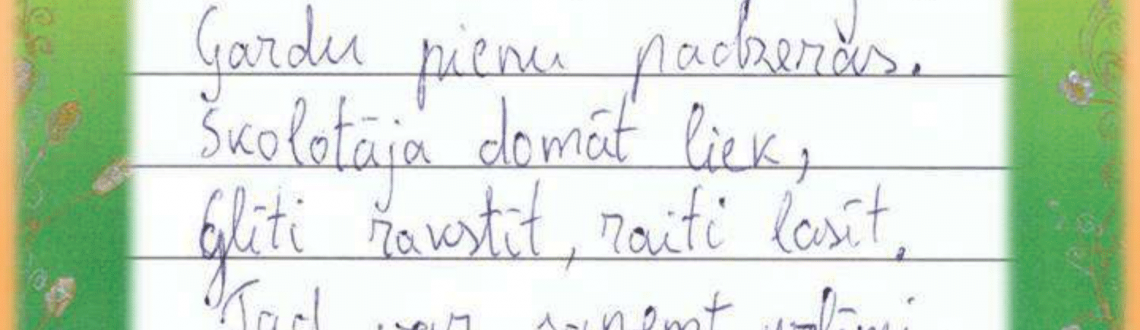 Gardu pienu padzerās.
Skolotāja domāt liek,
Glīti rakstīt, raiti lasīt.
Tad var